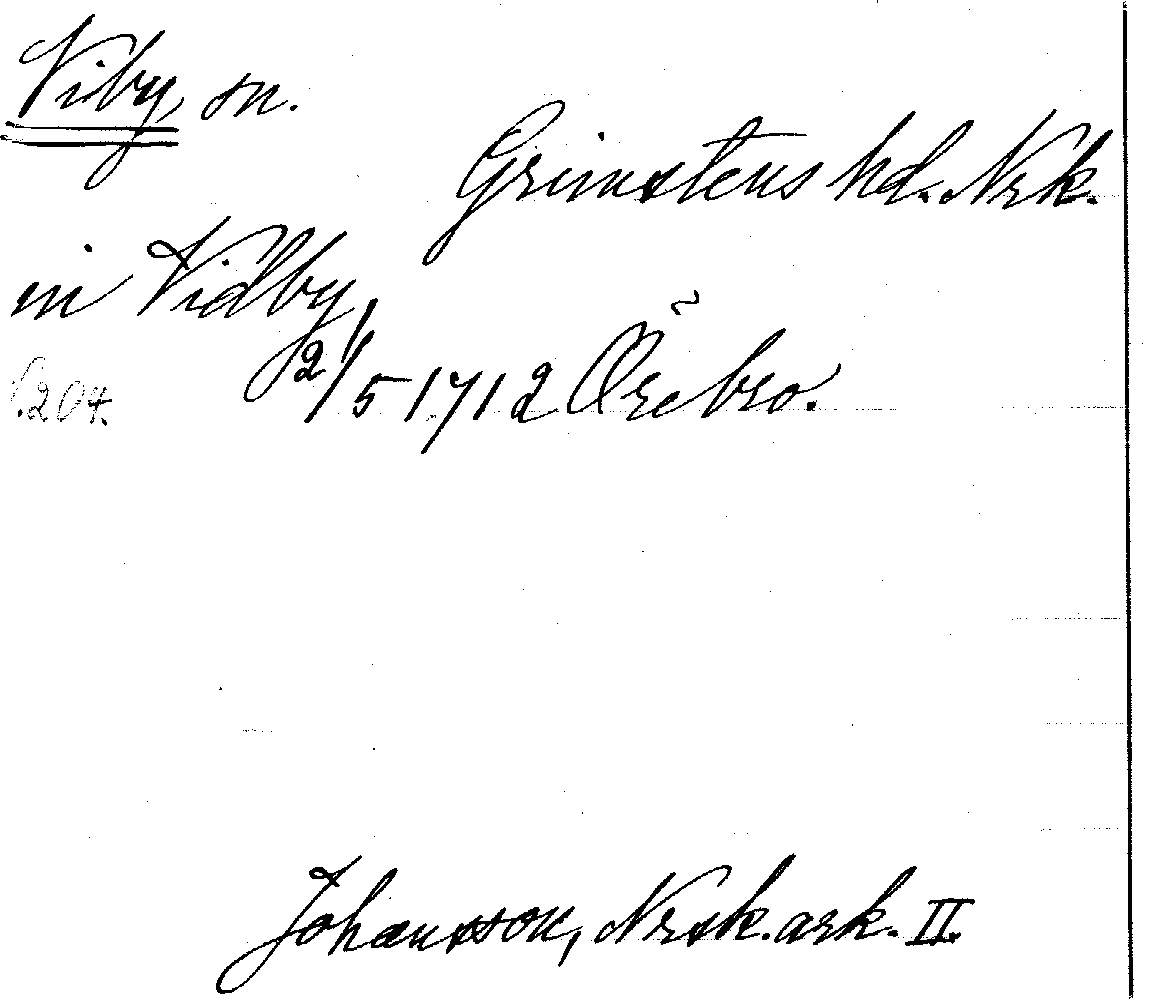 Viby, sn.
Grimstens hd. Nrk.
in Vidby
2/5 1712 Örebro.
S. 204.
Johansson, Nrsk. ark. II.